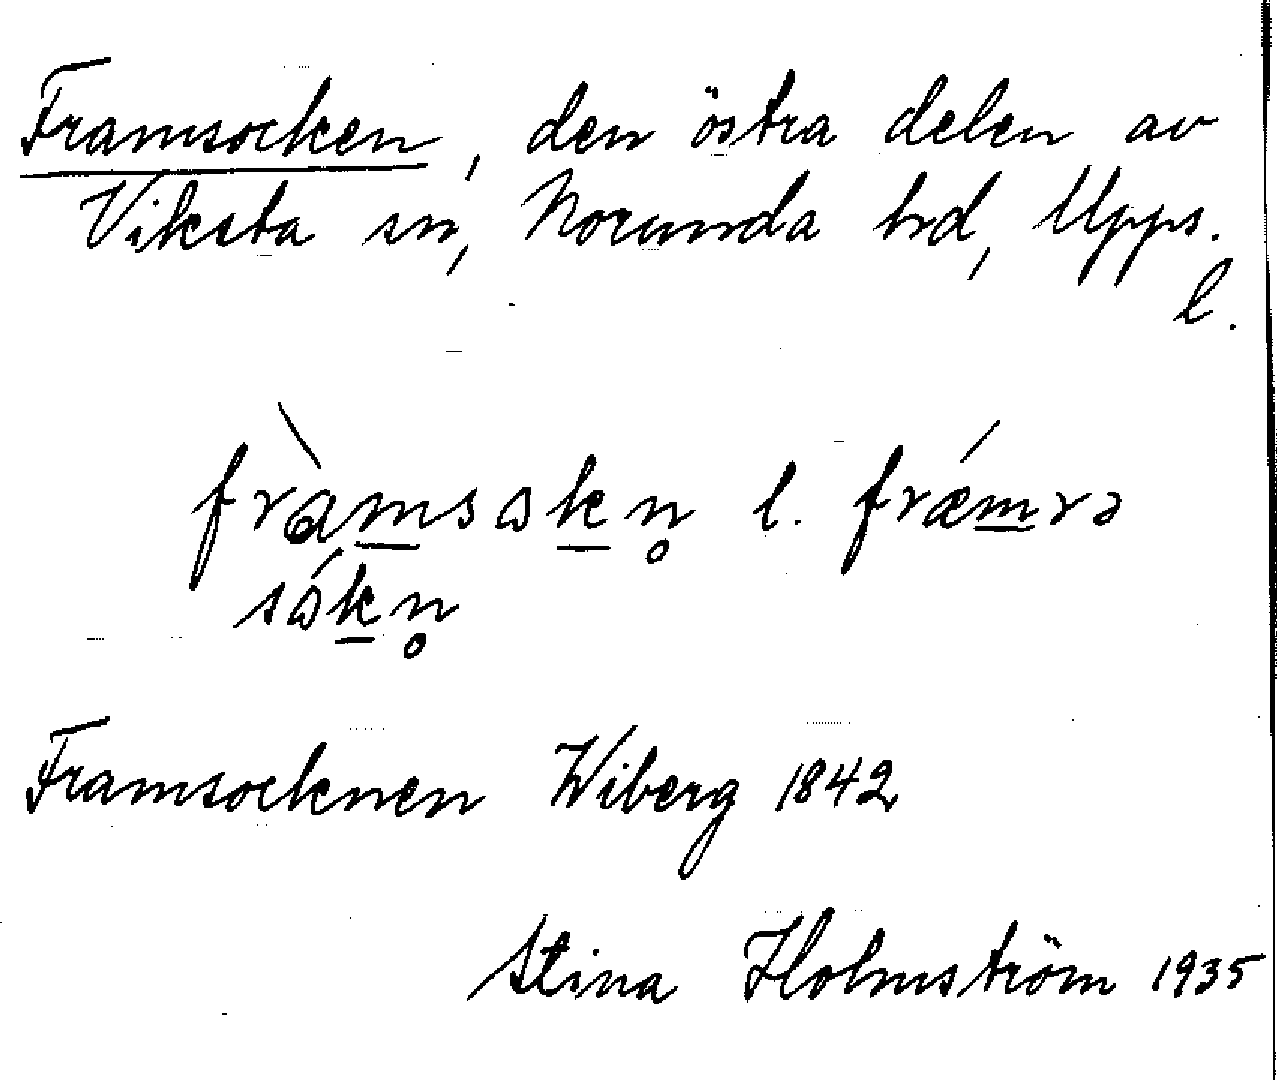 Framsocken, den östra delen av
Viksta sn, Norunda hd, Upps.
l.
fràmsɷkn̥ l. frǽmrə
sɷ́kn̥
Framsocknen Wiberg 1842
Stina Holmström 1935